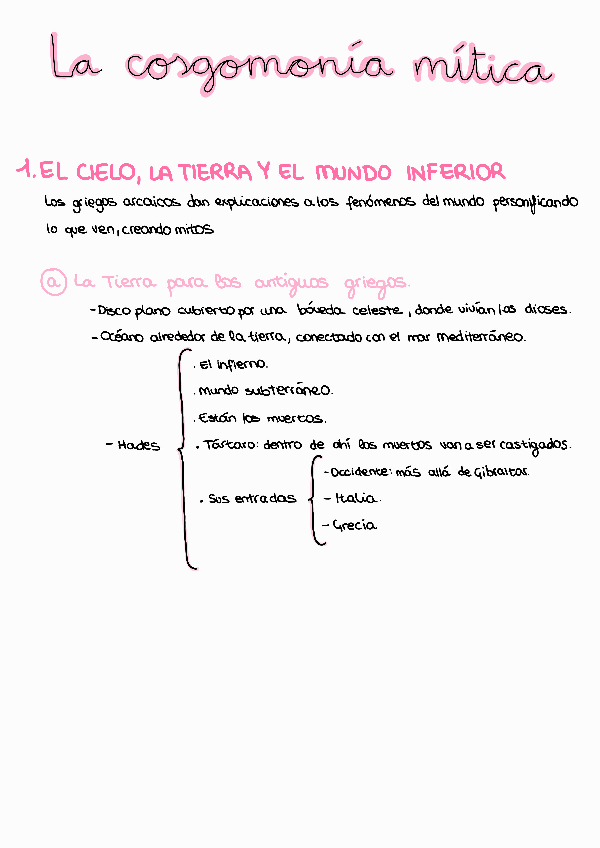 La cosgomonía mítica
1. EL CIELO, LA TIERRA Y EL MUNDO INFERIOR
Los griegos arcaicos dan explicaciones a los fenómenos del mundo personificando
lo que ven, creando mitos
a La Tierra para los antiguos griegos.
- Disco plano cubierto por una bóveda celeste, donde vivían los dioses.
- Océano alrededor de la tierra, conectado con el mar mediterráneo.
- Hades
. El infierno.
. Mundo subterráneo.
. Están los muertos.
. Tártaro: dentro de ahí los muertos van a ser castigados.
. Sus entradas
- Occidente: más allá de Gibraltar.
- Italia.
- Grecia